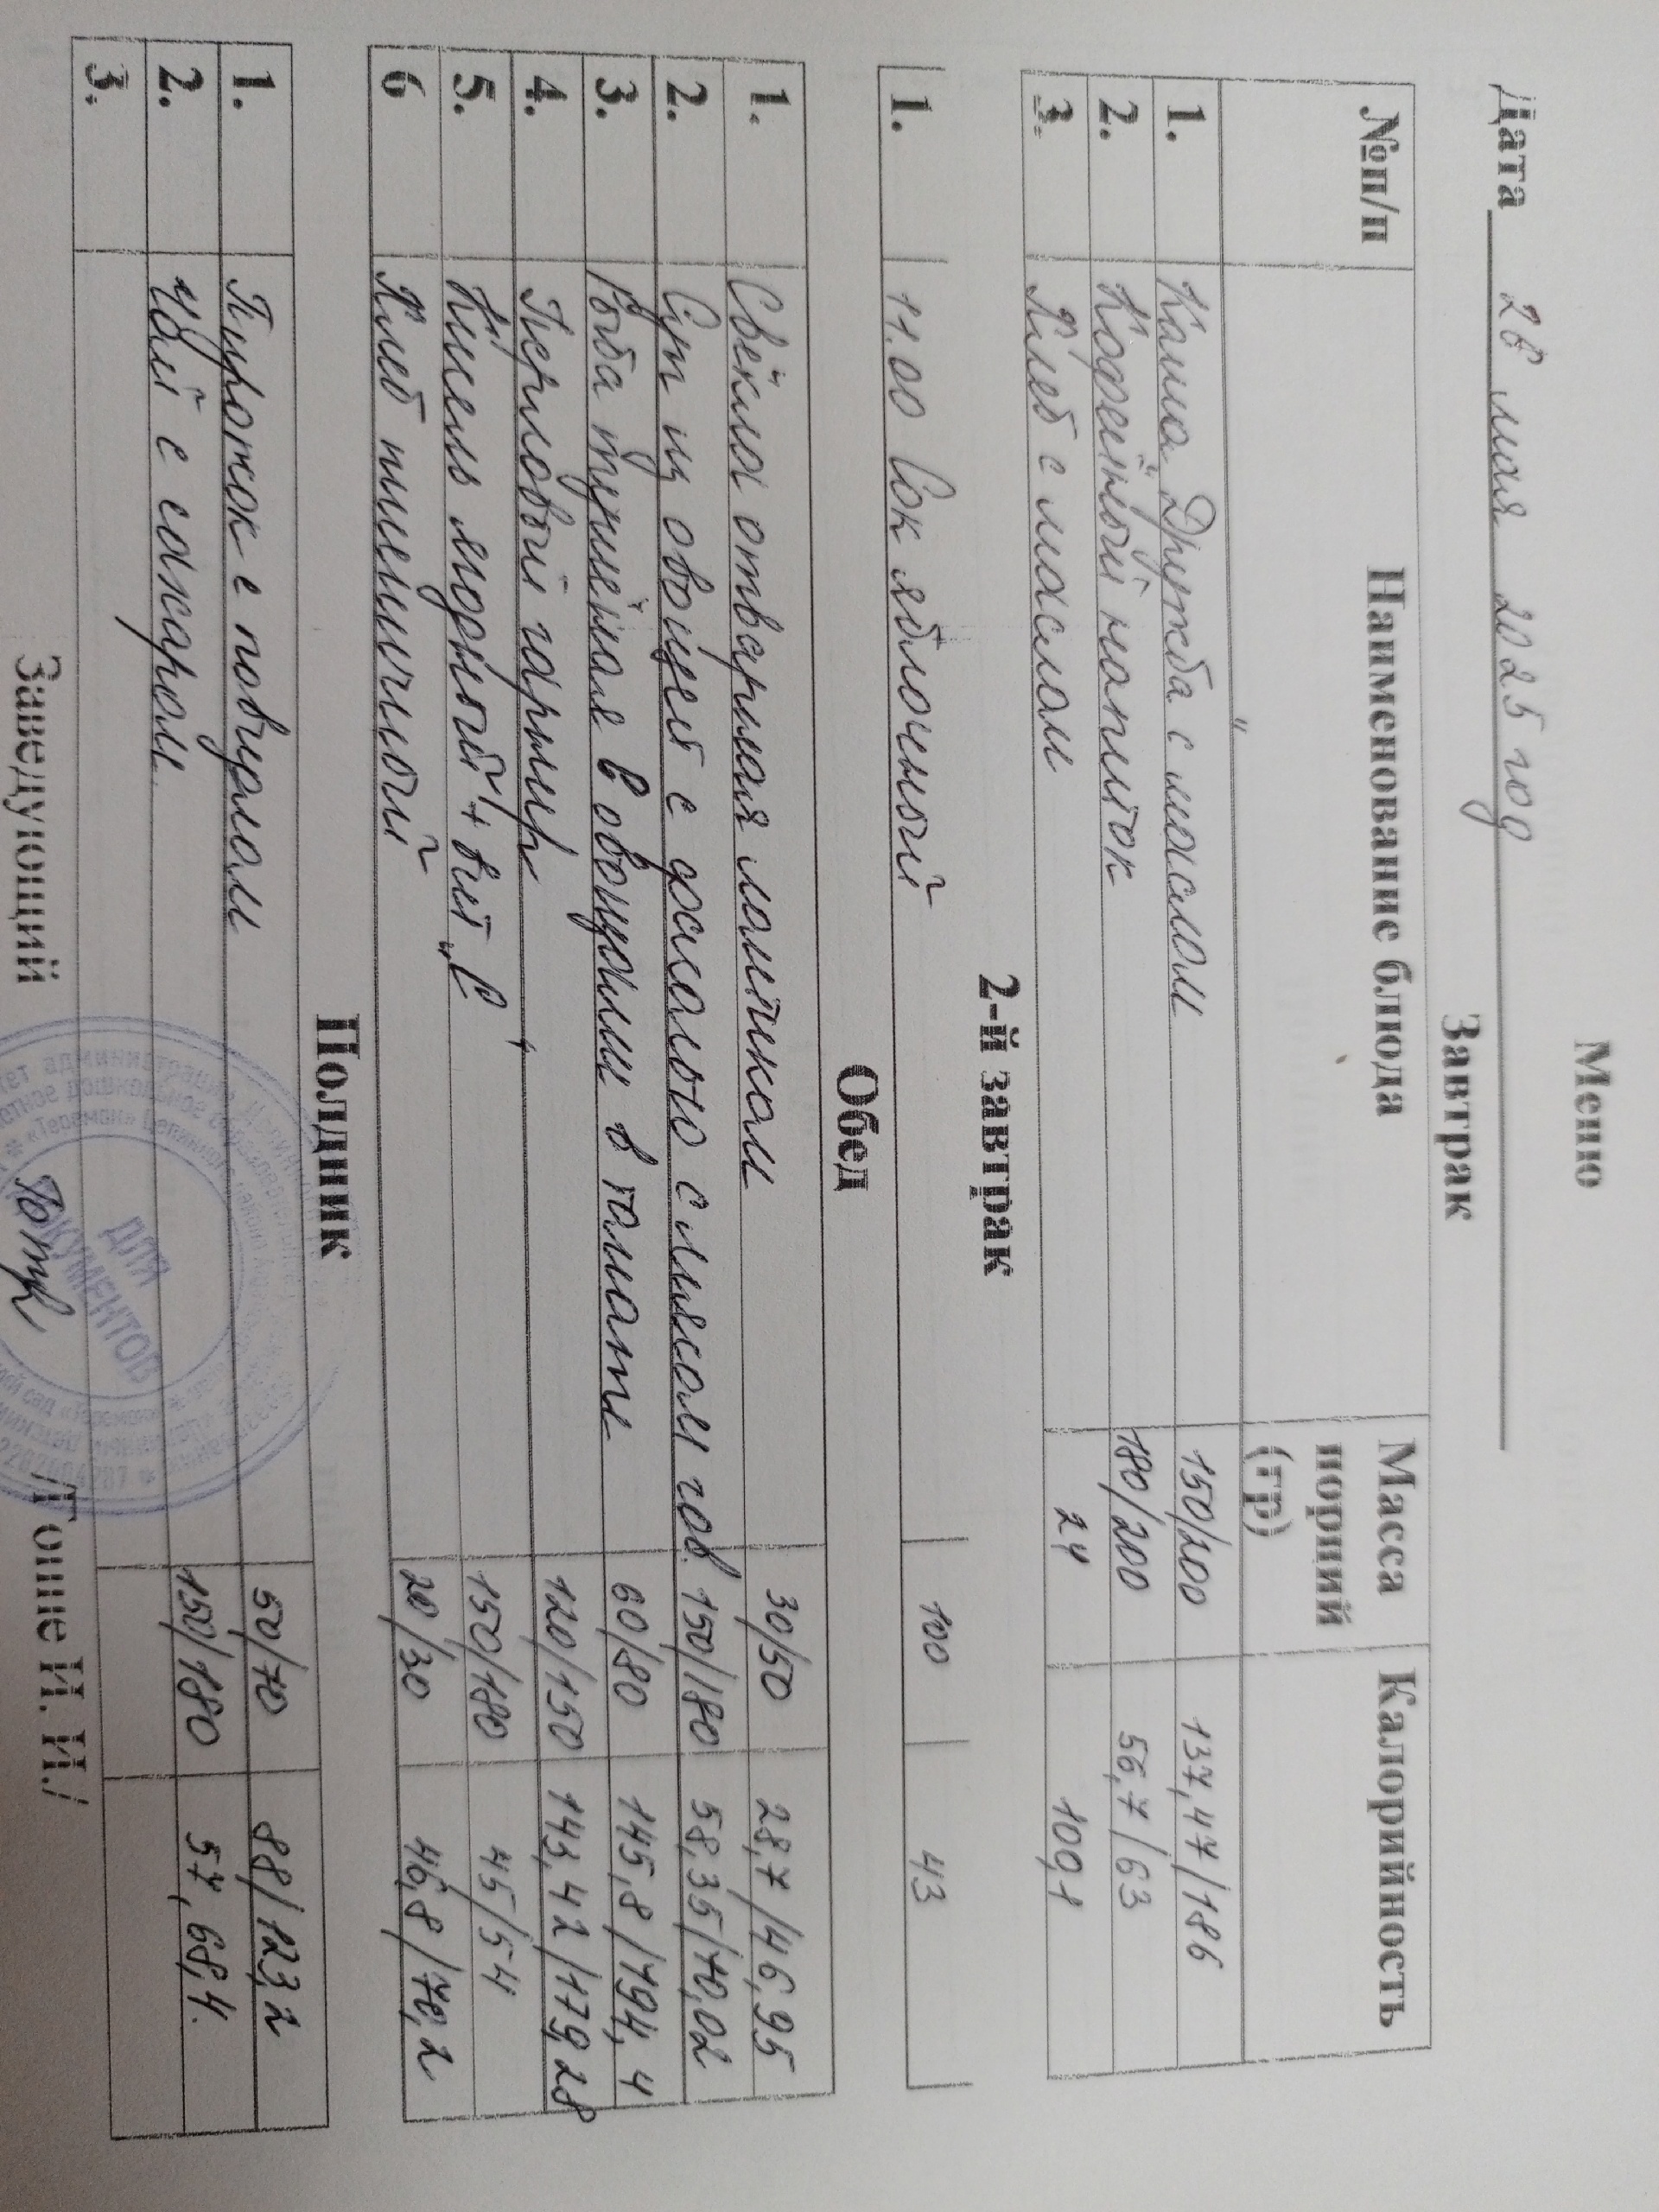 Меню
Дата 28 мая 2025 год
Завтрак
№п/п Наименование блюда Масса порций (гр) Калорийность
1. Каша „Дружба" с маслом 150/200 137,47/186
2. Кофейный напиток 180/200 56,7/63
3. Хлеб с маслом 24 100,1
2-й завтрак
1. 11.00 Сок яблочный 100 43
Обед
1. Свёкла отварная ломтиком 30/50 28,7/46,95
2. Суп из овощей с фасолью с мясом гов. 150/180 58,35/70,02
3. Рыба тушёная с овощами в томате 60/80 145,8/194,4
4. Перловый гарнир 120/150 143,42/179,28
5. Кисель ягодный + вит „С" 150/180 45/54
6 Хлеб пшеничный 20/30 46,8/70,2
Полдник
1. Пирожок с повидлом 50/70 88/123,2
2. Чай с сахаром 150/180 57, 68,4.
3.
Заведующий /Топпе И. И./
ДЛЯ
ДОКУМЕНТОВ